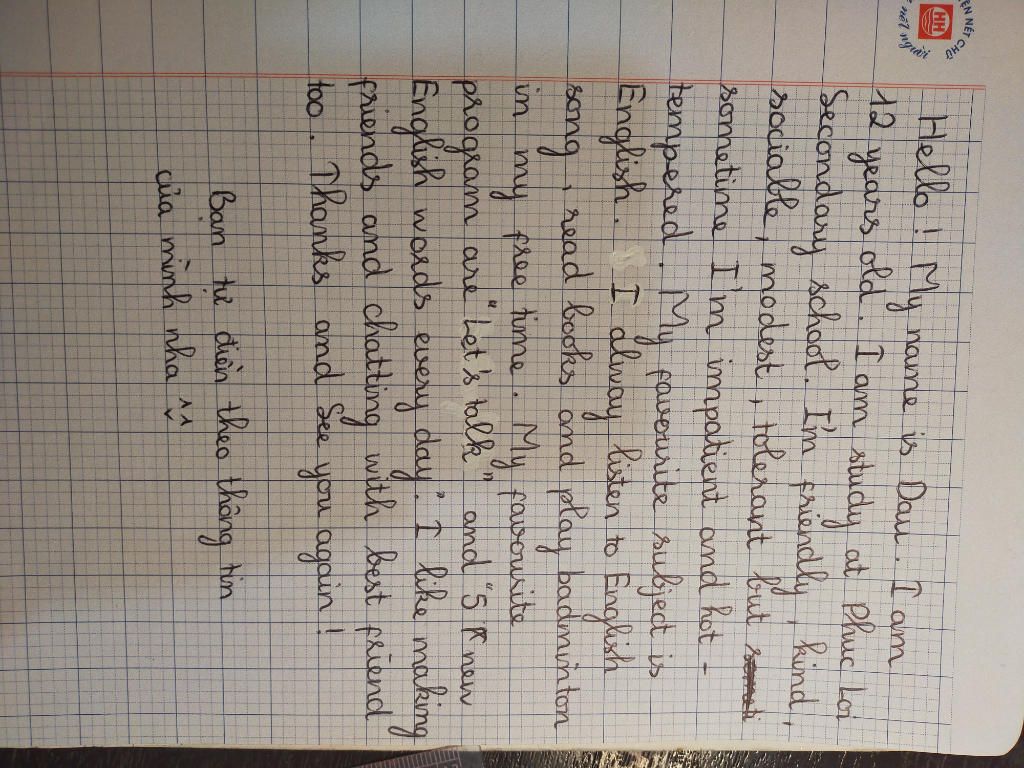 Hello! My name is Dau. I am
12 years old. I am study at Phuc Loi
Secondary school. I'm friendly, kind,
sociable, modest, tolerant but
sometime I'm impatient and hot -
tempered. My favourite subject is
English. I alway listen to English
song, read books and play badminton
in my free time. My favourite
program are "Let's talk" and "5 new
English words every day." I like making
friends and chatting with best friend
too. Thanks and See you again!
Bạn tự điền theo thông tin
của mình nha
NÉT CHỮ
nết người
HH